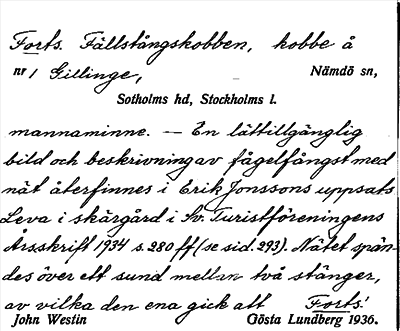 Forts. Fällstångskobben, kobbe å
nr 1 Gillinge, Nämdö sn,
Sotholms hd, Stockholms l.
mannaminne. — En lättillgänglig
bild och beskrivning av fågelfångst med
nät återfinnes i Erik Jonssons uppsats
Leva i skärgård i Sv. Turistföreningens
Årsskrift 1934 s. 280 ff (se sid. 293). Nätet spän-
des över ett sund mellan två stänger,
av vilka den ena gick att Forts.
John Westin Gösta Lundberg 1936.